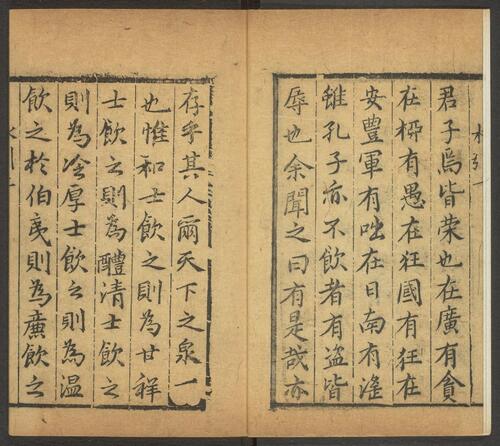 君子焉皆荣也在廣有貪
在柳有愚在狂國有狂在
安豐軍有咄在日南有滛
雖孔子亦不飲者有盗皆
辱也余聞之曰有是哉亦
存乎其人爾天下之泉一
也惟和士飲之則為甘祥
士飲之則為醴清士飲之
則為冷厚士飲之則為温
飲之於伯夷則為廉飲之